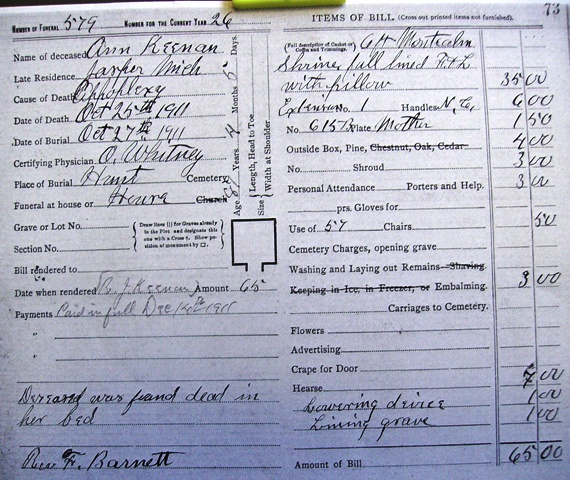 NUMBER OF FUNERAL 579 NUMBER FOR THE CURRENT YEAR 26
Name of deceased Ann Keenan
Late Residence Jasper Mich
Cause of Death Appoplexy
Date of Death Oct 25th 1911
Date of Burial Oct 27th 1911
Certifying Physician O. Whitney
Place of Burial Hunt Cemetery
Funeral at house or Church House
Age Years Months Days
Size Length, Head to Toe
Width at Shoulder
Grave or Lot No.
Section No.
Draw lines ||| for Graves already in the Plot and designate this one with a Cross †. Show position of monument by □.
Bill rendered to
Date when rendered B. J. Keenan Amount 65
Payments Paid in full Dec 14th 1911
"
"
"
Deceased was found dead in
her bed
Rev F. Barnett
73
ITEMS OF BILL (Cross out printed items not furnished).
(Full description of Casket or Coffin and Trimmings. 6ft Montcalm
Shrine full lined
with pillow 35 00
Extension No. 1 Handles N. C. 6 00
No. 615 Plate Mother 1 50
Outside Box, Pine, Chestnut, Oak, Cedar. 4 00
No. Shroud 3 00
Personal Attendance Porters and Help. 3 00
prs. Gloves for
Use of 57 Chairs 50
Cemetery Charges, opening grave
Washing and Laying out Remains—Shaving.
Keeping in Ice, in Freezer, or Embalming. 3 00
Carriages to Cemetery.
Flowers
Advertising
Crape for Door
Hearse 7 00
Lowering device 1 00
Lining grave 1 00
Amount of Bill 65 00